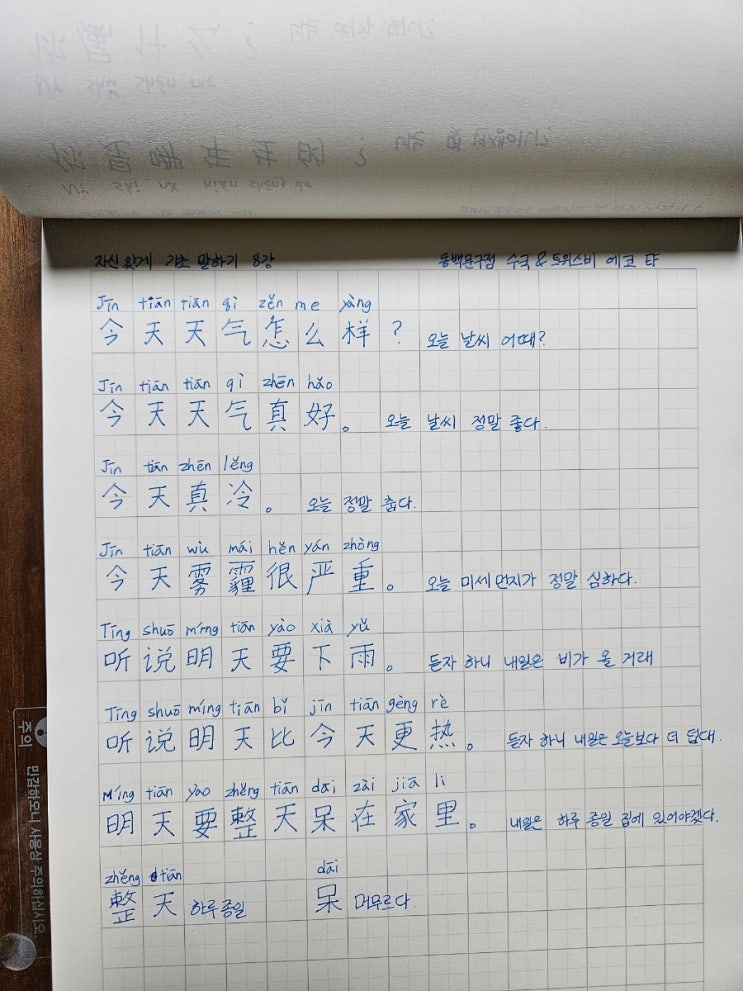 자신있게 기초 말하기 8강 동백문구점 수국 & 트위스비 에코 EF
Jīn tiān tiān qì zěn me yàng
今天天气怎么样? 오늘 날씨 어때?
Jīn tiān tiān qì zhēn hǎo
今天天气真好。 오늘 날씨 정말 좋다.
Jīn tiān zhēn lěng
今天真冷。 오늘 정말 춥다.
Jīn tiān wù mái hěn yán zhòng
今天雾霾很严重。 오늘 미세먼지가 정말 심하다.
Tīng shuō míng tiān yào xià yǔ
听说明天要下雨。 듣자 하니 내일은 비가 올 거래
Tīng shuō míng tiān bǐ jīn tiān gèng rè
听说明天比今天更热。 듣자 하니 내일은 오늘보다 더 덥대.
Míng tiān yào zhěng tiān dāi zài jiā li
明天要整天呆在家里。 내일은 하루 종일 집에 있어야겠다.
zhěng tiān dāi
整天 하루종일 呆 머무르다.
주의
민감하오니 사용상 주의하십시오